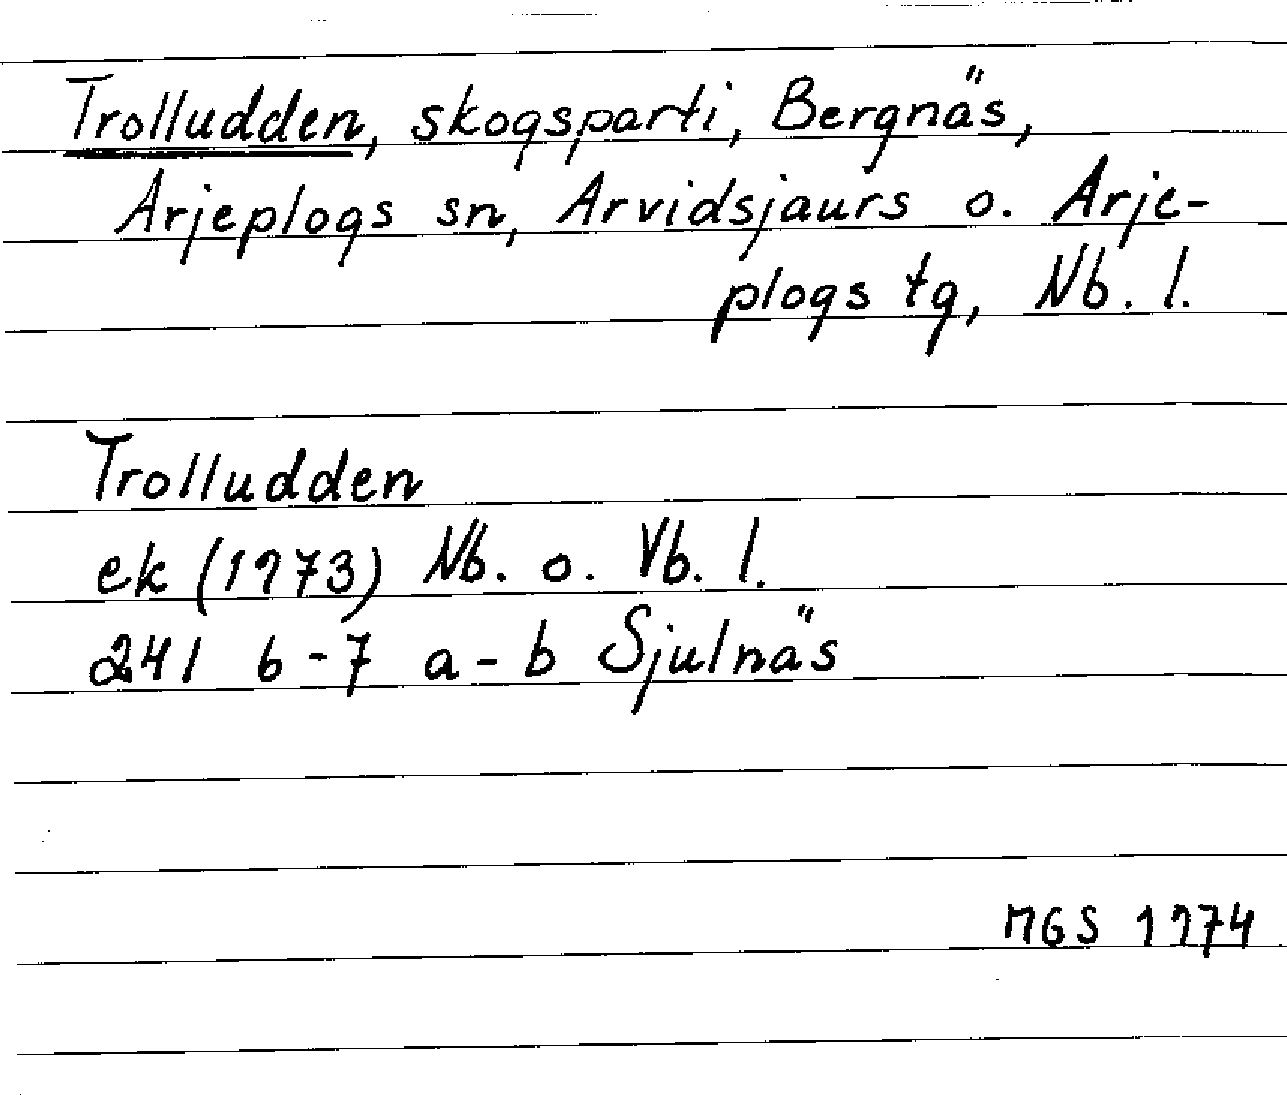 Trolludden, skogsparti, Bergnäs,
Arjeplogs sn, Arvidsjaurs o. Arje-
plogs tg, Nb. l.
Trolludden
ek (1973) Nb. o. Vb. l.
241 6-7 a-b Sjulnäs
MGS 1974